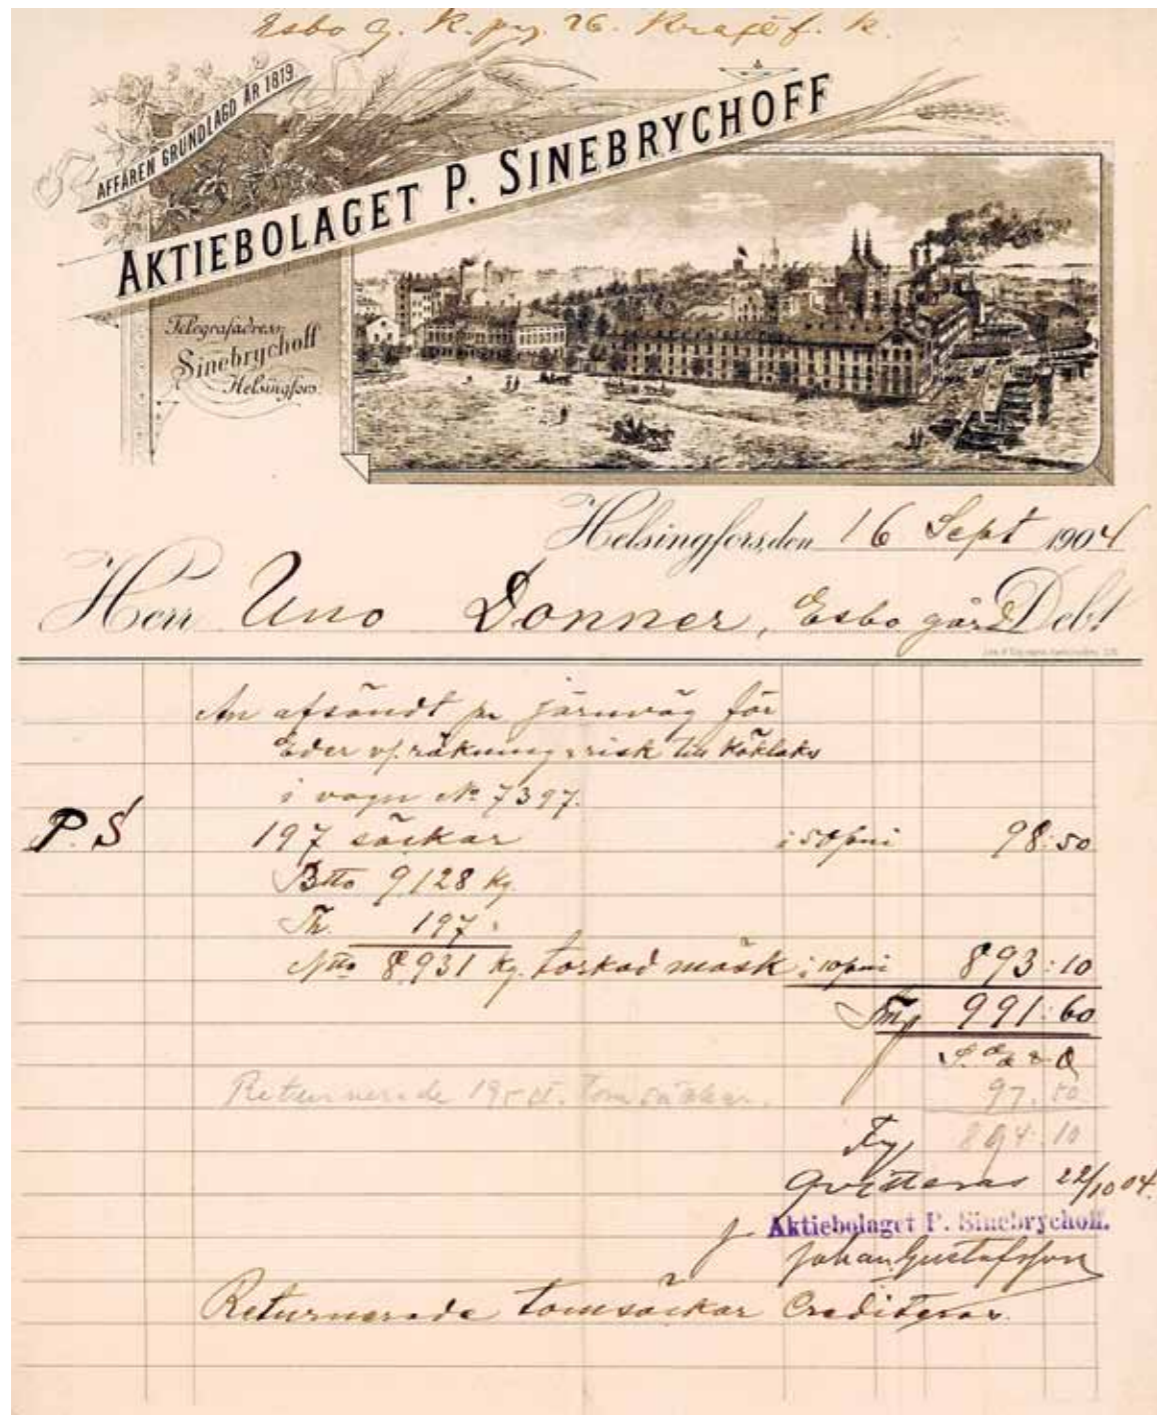 Esbo g. K. pr. 26. Kraftf. k.
AFFÄREN GRUNDLAGD ÅR 1819
AKTIEBOLAGET P. SINEBRYCHOFF
Telegrafadress:
Sinebrychoff
Helsingfors.
Helsingfors, den 16 Sept 1904
Herr Uno Donner, Esbo gård Debt
An afsändt pr järnväg för
Eder räkning & risk till Köklaks
i vagn No 7397.
P. S 197 säckar à 50 pni 98:50
Btto 9128 Kg.
Th. 197 "
Ntto 8931 Kg. torkad mäsk à 10 pni 893:10
Fmf 991:60
S. E. & O
Returnerade 195 st. tomsäckar. 97.50
Fmf 894:10
Qvitteras 22/10 04.
Aktiebolaget P. Sinebrychoff.
Johan Gustafsson
Returnerade tomsäckar Crediteras.